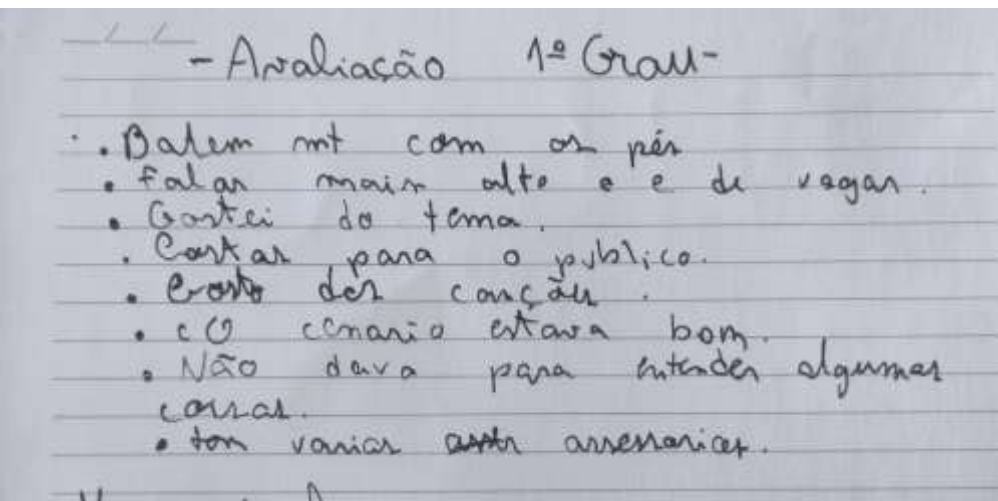 - Avaliação 1º Grau -
. Batem mt com os pés
. falar mais alto e e de vagar.
. Gostei do tema.
. Costas para o público.
. Gosto des canções.
. O cenario estava bom.
. Não dava para entender algumas
coisas.
. tem varias assessorios.